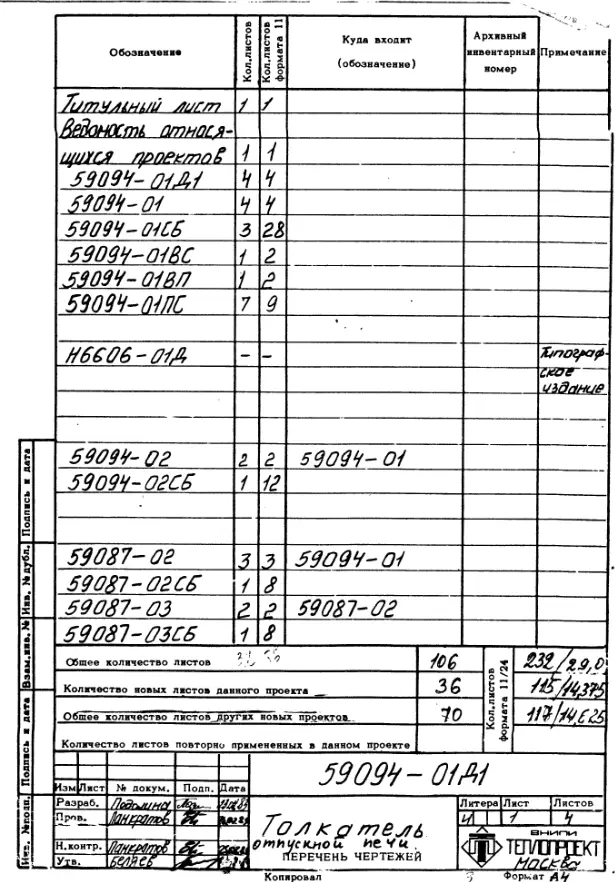 Обозначение Кол.листов Кол.листов формата 11 Куда входит (обозначение) Архивный инвентарный номер Примечание
Титульный лист 1 1
Ведомость относя-
щихся проектов 1 1
59094-01Д1 4 4
59094-01 4 4
59094-01СБ 3 28
59094-01ВС 1 2
59094-01ВП 1 2
59094-01ПС 7 9
Н6606-01Д - - Типограф-
ское
издание
59094-02 2 2 59094-01
59094-02СБ 1 12
59087-02 3 3 59094-01
59087-02СБ 1 8
59087-03 2 2 59087-02
59087-03СБ 1 8
Общее количество листов 106 Кол.листов формата 11/24 232/29,0
Количество новых листов данного проекта 36 115/14,375
Общее количество листов других новых проектов 70 117/14,625
Количество листов повторно примененных в данном проекте
Подпись и дата
Инв. № дубл.
Взам.инв. №
Подпись и дата
Инв. № подл.
59094-01Д1
Изм Лист № докум. Подп. Дата
Разраб. Литера Лист Листов
Пров. Панкратов Толкатель И 1 4
отпускной печи
Н.контр. Панкратов ПЕРЕЧЕНЬ ЧЕРТЕЖЕЙ ВНИПИ
Утв. Беляев ТЕПЛОПРОЕКТ
МОСКВА
Копировал Формат А4